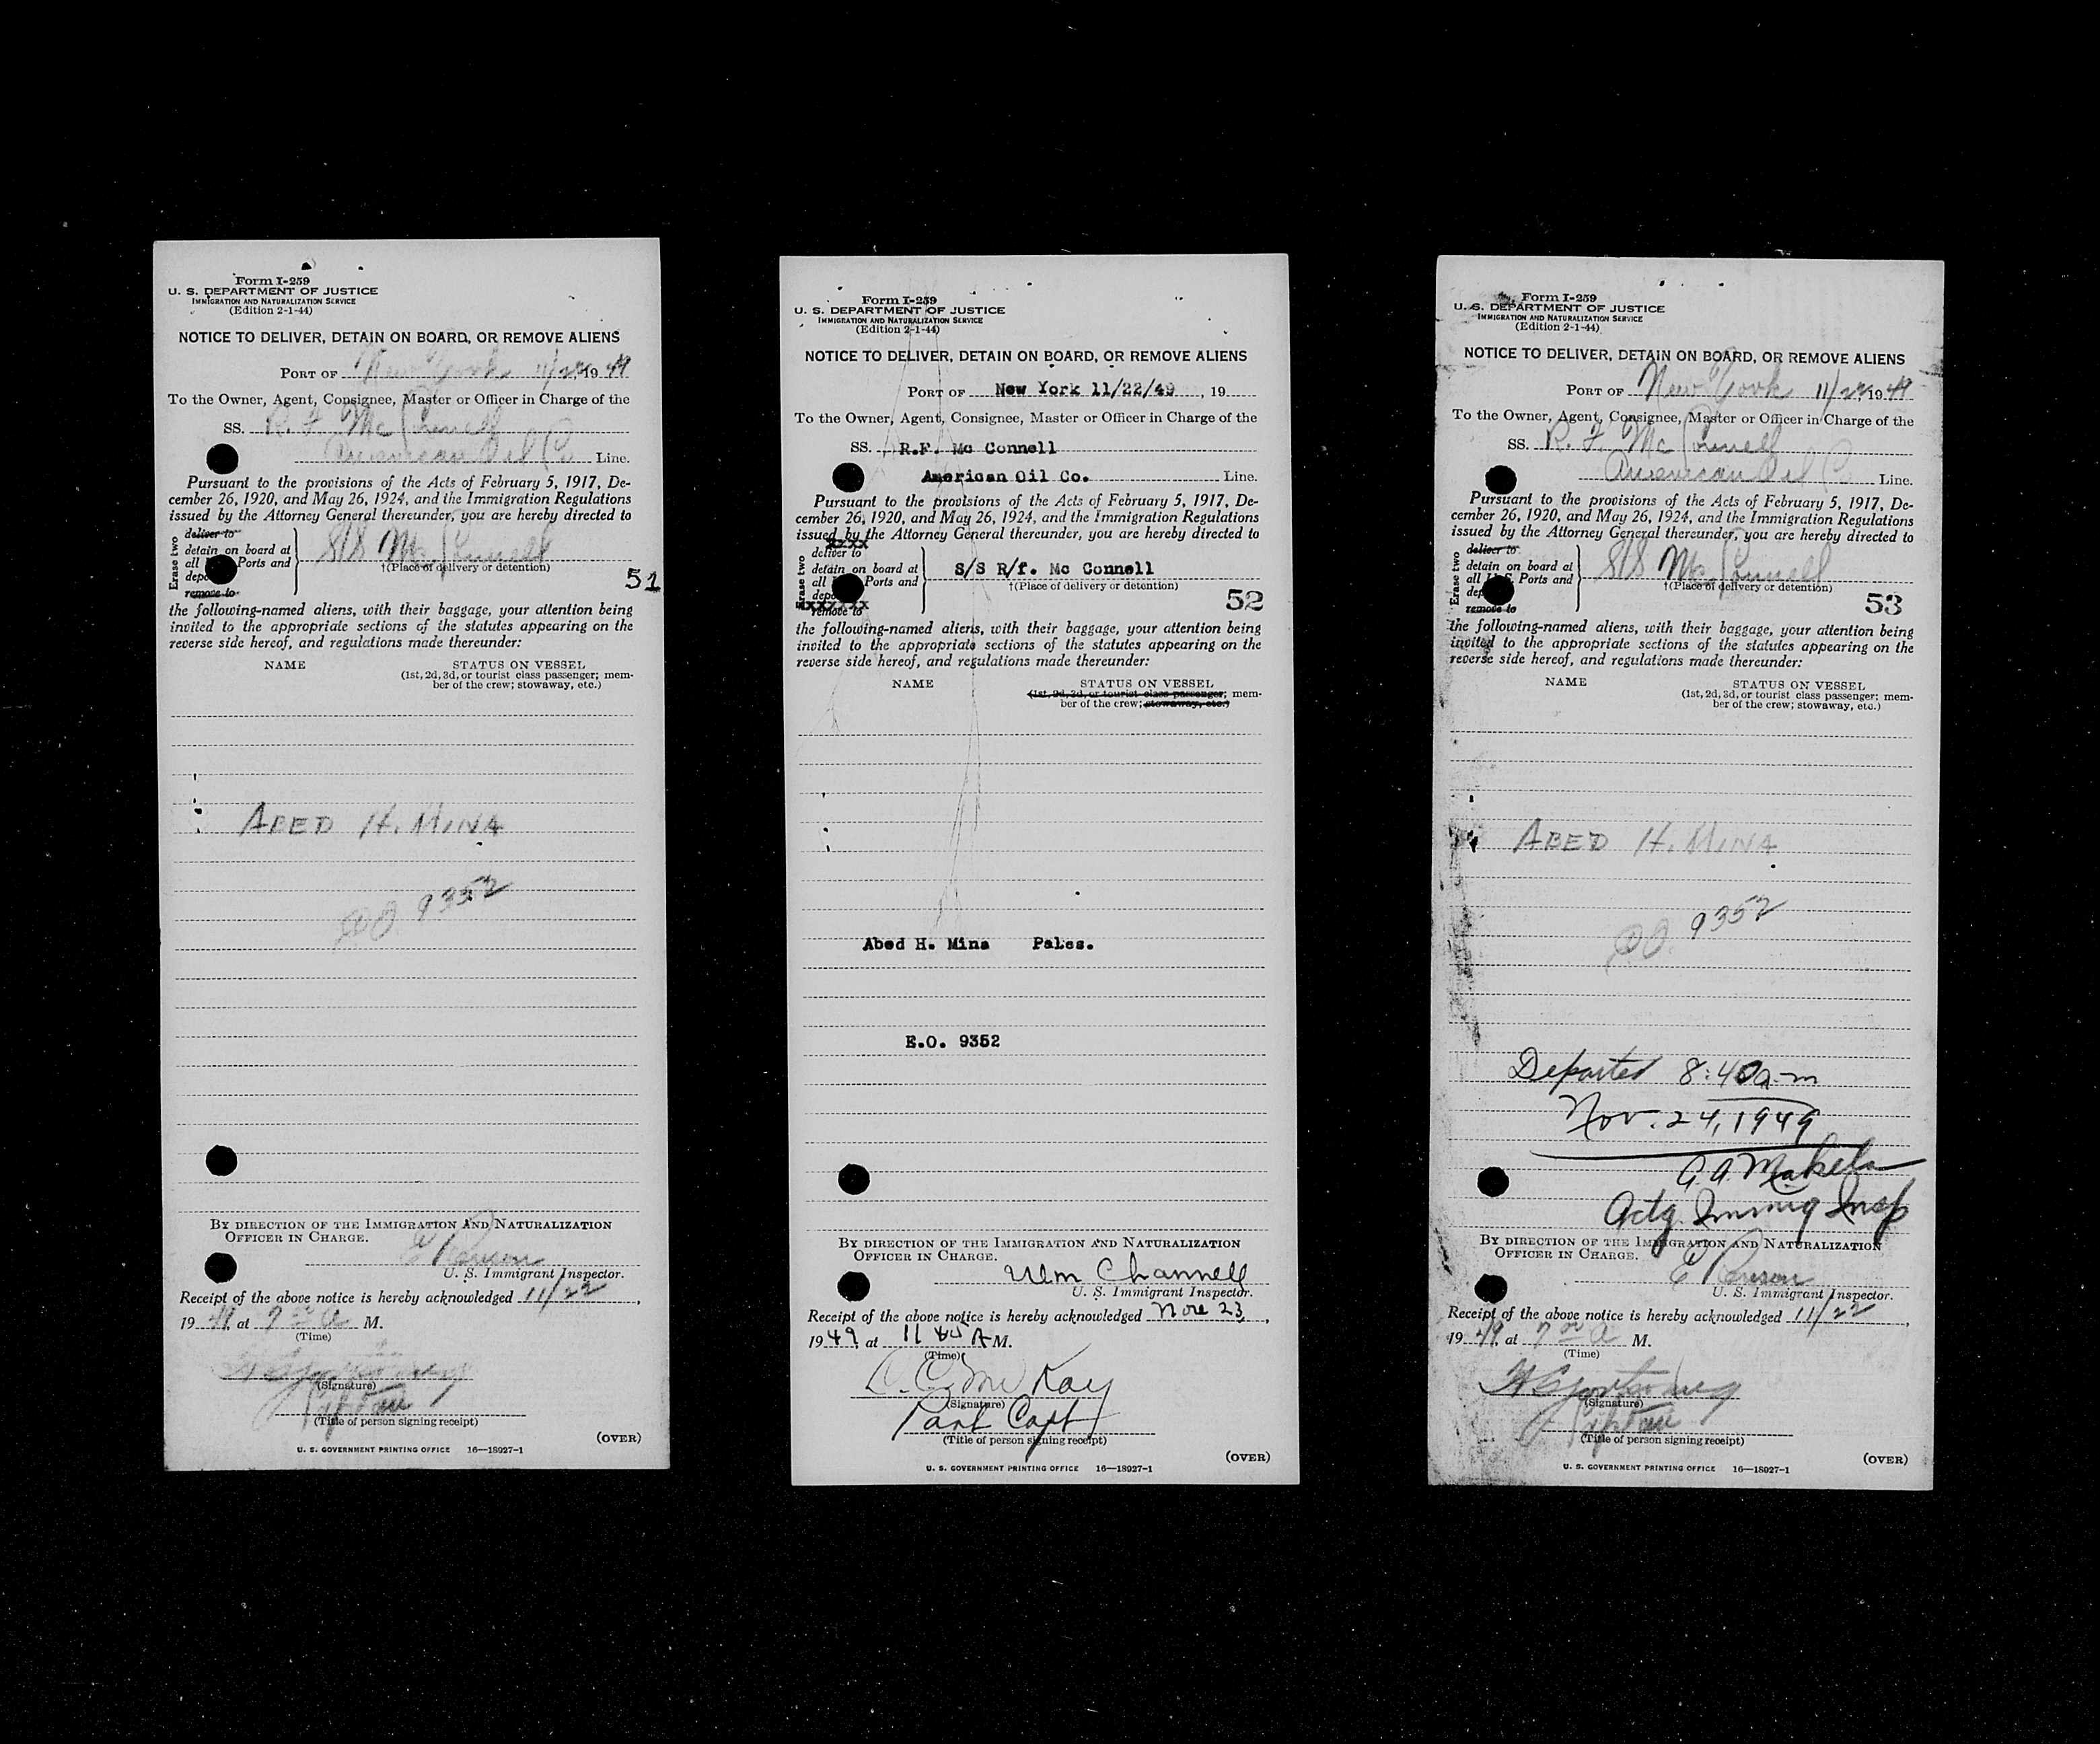 Form I-259
U. S. DEPARTMENT OF JUSTICE
IMMIGRATION AND NATURALIZATION SERVICE
(Edition 2-1-44)
NOTICE TO DELIVER, DETAIN ON BOARD, OR REMOVE ALIENS
PORT OF New York 11/22 1949
To the Owner, Agent, Consignee, Master or Officer in Charge of the
SS. R. F. McConnell
American Oil Co Line.
Pursuant to the provisions of the Acts of February 5, 1917, De-
cember 26, 1920, and May 26, 1924, and the Immigration Regulations
issued by the Attorney General thereunder, you are hereby directed to
Erase two
deliver to
detain on board at
all Ports and
depo
remove to
S/S McConnell
†(Place of delivery or detention)
51
the following-named aliens, with their baggage, your attention being
invited to the appropriate sections of the statutes appearing on the
reverse side hereof, and regulations made thereunder:
NAME STATUS ON VESSEL
(1st, 2d, 3d, or tourist class passenger; mem-
ber of the crew; stowaway, etc.)
ABED H. MINA
9352
BY DIRECTION OF THE IMMIGRATION AND NATURALIZATION
OFFICER IN CHARGE.
U. S. Immigrant Inspector.
Receipt of the above notice is hereby acknowledged 11/22,
1949, at 7 00 A M.
(Time)
(Signature)
Captain
(Title of person signing receipt)
U. S. GOVERNMENT PRINTING OFFICE 16—18927-1
(OVER)
Form I-259
U. S. DEPARTMENT OF JUSTICE
IMMIGRATION AND NATURALIZATION SERVICE
(Edition 2-1-44)
NOTICE TO DELIVER, DETAIN ON BOARD, OR REMOVE ALIENS
PORT OF New York 11/22/49, 19
To the Owner, Agent, Consignee, Master or Officer in Charge of the
SS. R.F. Mc Connell
American Oil Co. Line.
Pursuant to the provisions of the Acts of February 5, 1917, De-
cember 26, 1920, and May 26, 1924, and the Immigration Regulations
issued by the Attorney General thereunder, you are hereby directed to
Erase two
xxxx
deliver to
detain on board at
all Ports and
depo
xxxxxxx
remove to
S/S R/f. Mc Connell
†(Place of delivery or detention)
52
the following-named aliens, with their baggage, your attention being
invited to the appropriate sections of the statutes appearing on the
reverse side hereof, and regulations made thereunder:
NAME STATUS ON VESSEL
(1st, 2d, 3d, or tourist class passenger; mem-
ber of the crew; stowaway, etc.)
Abed H. Mina Pales.
E.O. 9352
BY DIRECTION OF THE IMMIGRATION AND NATURALIZATION
OFFICER IN CHARGE.
Wm Channell
U. S. Immigrant Inspector.
Receipt of the above notice is hereby acknowledged Nov 23,
1949, at 11 45 A M.
(Time)
McKay
(Signature)
Port Capt
(Title of person signing receipt)
U. S. GOVERNMENT PRINTING OFFICE 16—18927-1
(OVER)
Form I-259
U. S. DEPARTMENT OF JUSTICE
IMMIGRATION AND NATURALIZATION SERVICE
(Edition 2-1-44)
NOTICE TO DELIVER, DETAIN ON BOARD, OR REMOVE ALIENS
PORT OF New York 11/22, 1949
To the Owner, Agent, Consignee, Master or Officer in Charge of the
SS. R. F. McConnell
American Oil Co Line.
Pursuant to the provisions of the Acts of February 5, 1917, De-
cember 26, 1920, and May 26, 1924, and the Immigration Regulations
issued by the Attorney General thereunder, you are hereby directed to
Erase two
deliver to
detain on board at
all U.S. Ports and
dep
remove to
S/S McConnell
†(Place of delivery or detention)
53
the following-named aliens, with their baggage, your attention being
invited to the appropriate sections of the statutes appearing on the
reverse side hereof, and regulations made thereunder:
NAME STATUS ON VESSEL
(1st, 2d, 3d, or tourist class passenger; mem-
ber of the crew; stowaway, etc.)
ABED H. MINA
9352
Departed 8:40 am
Nov. 24, 1949
Makela
Actg. Immig Insp
BY DIRECTION OF THE IMMIGRATION AND NATURALIZATION
OFFICER IN CHARGE.
U. S. Immigrant Inspector.
Receipt of the above notice is hereby acknowledged 11/22,
1949, at 7 00 A M.
(Time)
(Signature)
Captain
(Title of person signing receipt)
U. S. GOVERNMENT PRINTING OFFICE 16—18927-1
(OVER)